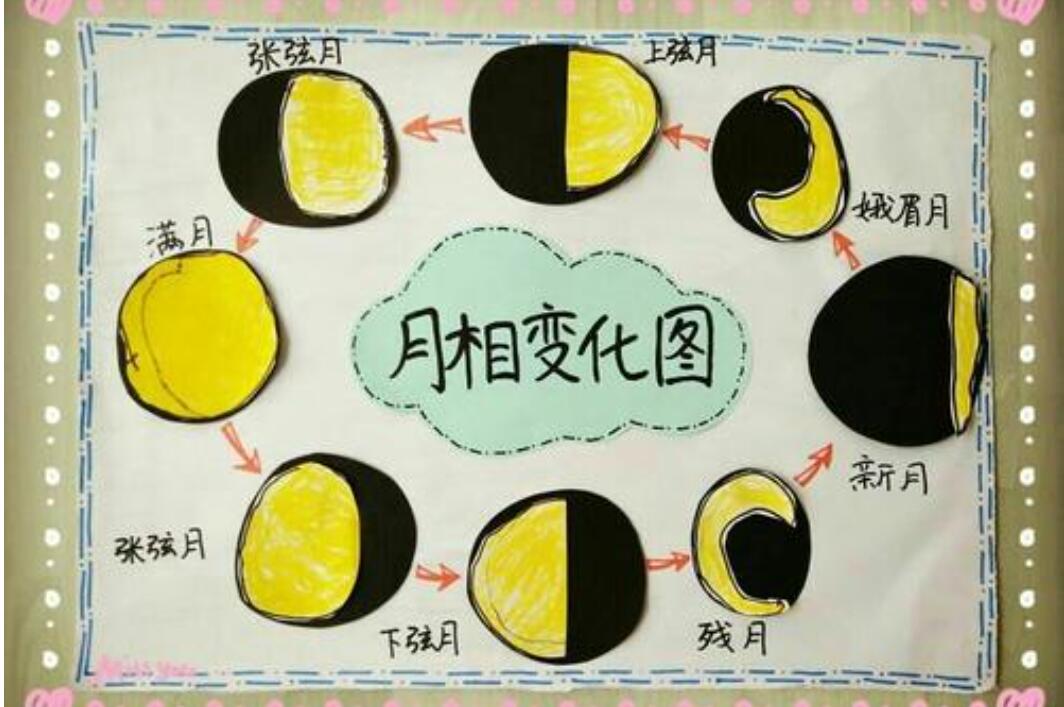 张弦月
上弦月
娥眉月
满月
月相变化图
新月
张弦月
下弦月
残月